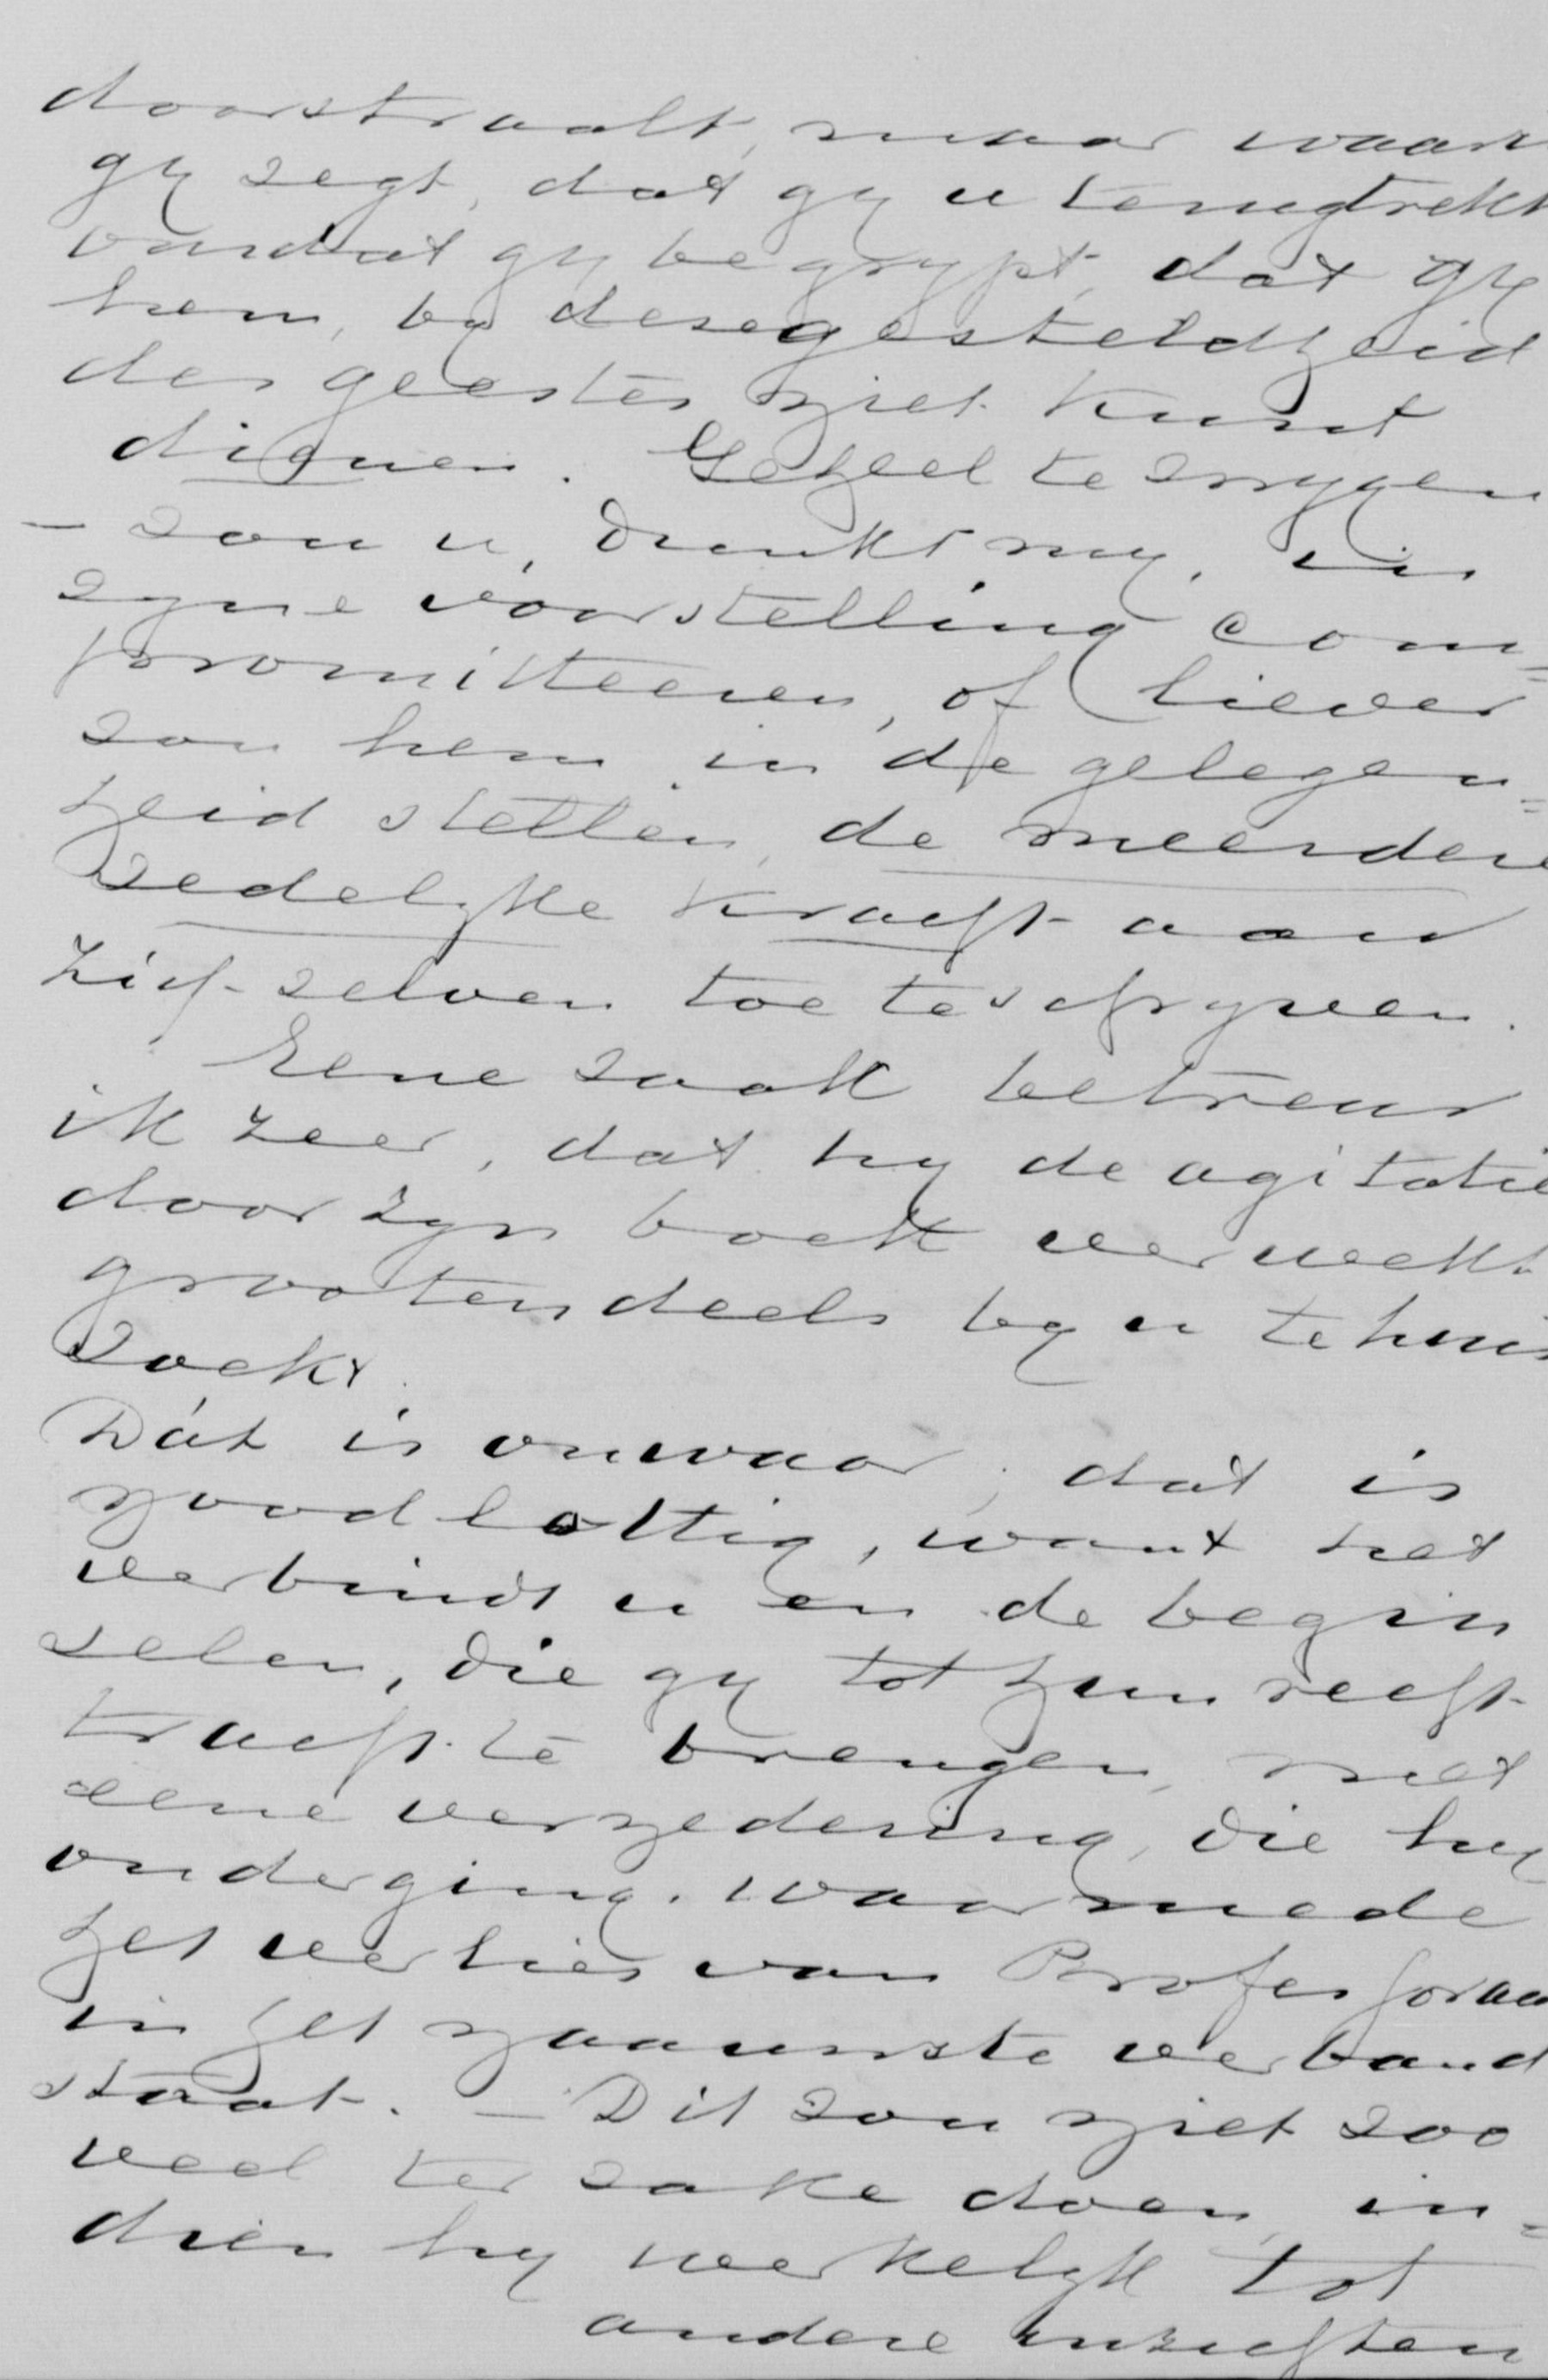 doorstraalt, maar waarin
gy zegt, dat gy u terugtrekt
omdat gy begrypt, dat gy
hem, by deze gesteldheid
des geestes niet kunt
dienen. Geheel te zwygen
– zou u, dunkt my, in
zyne voorstelling com=
promitteeren, of liever
zou hem in de gelegen=
heid stellen, de meerdere
zedelyke kracht aan
zich-zelven toe te schryven.
Eene zaak betreur
ik zeer, dat hy de agitatie
door zyn boek verwekt
grootendeels by u te huis
zoekt.
Dát is onwaar; dat is
noodlottig, want het
verbindt u en de begin
selen, die gy tot hun recht
tracht te brengen, met
eene vernedering, die hy
onderging, waarmede
het verlies van Professoraat
in het naauwste verband
staat. – Dit zou niet zoo
veel ter zake doen, in=
dien hy werkelyk tot
andere inzichten